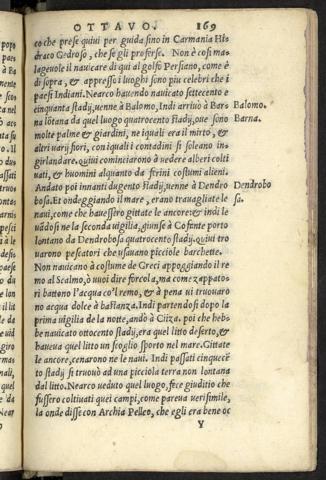 OTTAVO. 169
co che prese quiui per guida sino in Carmania His
draco Gedroso, che se gli proferse. Non è cosi ma-
lageuole il nauicare di qui al golfo Persiano, come è
di sopra, & appresso i luoghi sono piu celebri che i
paesi Indiani. Nearco hauendo nauicato settecento e
cinquanta stadij, uenne à Balomo, Indi arriuò à Bar
na lōtana da quel luogo quattrocento stadij, oue sono
molte palme & giardini, ne i quali era il mirto, &
altri uarij fiori, con i quali i contadini si soleano in-
girlandare. Quiui cominciarono à uedere alberi colti
uati, & huomini alquanto da ferini costumi alieni.
Andato poi innanti dugento stadij, uenne à Dendro
bosa. Et ondeggiando il mare, erano trauagliate le
naui, come che hauessero gittate le ancore: & indi le
uādosi ne la seconda uigilia, giunse à Cofante porto
lontano da Dendrobosa quattrocento stadij. Quiui tro
uarono pescatori che usauano picciole barchette.
Non nauicano à costume de Greci appoggiando il re
mo al Scalmo, ò uuoi dire forcola, ma come zappato-
ri battono l'acqua co'l remo, & à pena ui trouaro
no acqua dolce à bastanza. Indi partendosi dopo la
prima uigilia de la notte, andò à Ciiza. poi che heb-
be nauicato ottocento stadij, era quel litto deserto, &
haueua quel litto un scoglio sporto nel mare. Gittate
le ancore, cenarono ne le naui. Indi passati cinquecē
to stadij si truouò ad una picciola terra non lontana
dal litto. Nearco ueduto quel luogo, fece giuditio che
fussero coltiuati quei campi, come pareua uerisimile,
la onde disse con Archia Pelleo, che egli era bene oc
Y
Balomo.
Barna.
Dendrobo
sa.